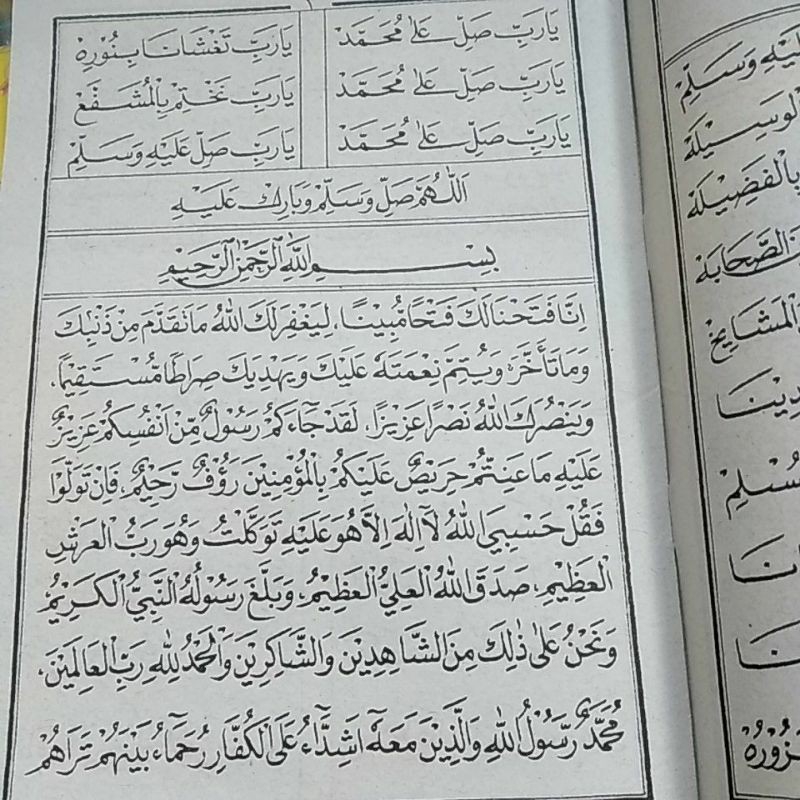 يَارَبِّ صَلِّ عَلَى مُحَمَّدْ يَارَبِّ تَغْشَانَا بِنُوْرِهْ
يَارَبِّ صَلِّ عَلَى مُحَمَّدْ يَارَبِّ نَخْتِمْ بِالْمُشَفَّعْ
يَارَبِّ صَلِّ عَلَى مُحَمَّدْ يَارَبِّ صَلِّ عَلَيْهِ وَسَلِّمْ
اَللّٰهُمَّ صَلِّ وَسَلِّمْ وَبَارِكْ عَلَيْهِ
بِسْمِ اللّٰهِ الرَّحْمٰنِ الرَّحِيْمِ
اِنَّا فَتَحْنَا لَكَ فَتْحًا مُّبِيْنًا، لِيَغْفِرَ لَكَ اللّٰهُ مَا تَقَدَّمَ مِنْ ذَنْبِكَ
وَمَا تَأَخَّرَ وَيُتِمَّ نِعْمَتَهُ عَلَيْكَ وَيَهْدِيَكَ صِرَاطًا مُّسْتَقِيْمًا،
وَيَنْصُرَكَ اللّٰهُ نَصْرًا عَزِيْزًا، لَقَدْ جَآءَكُمْ رَسُوْلٌ مِّنْ اَنْفُسِكُمْ عَزِيْزٌ
عَلَيْهِ مَا عَنِتُّمْ حَرِيْصٌ عَلَيْكُمْ بِالْمُؤْمِنِيْنَ رَؤُفٌ رَّحِيْمٌ، فَاِنْ تَوَلَّوْا
فَقُلْ حَسْبِيَ اللّٰهُ لَآ اِلٰهَ اِلَّا هُوَ عَلَيْهِ تَوَكَّلْتُ وَهُوَ رَبُّ الْعَرْشِ
الْعَظِيْمِ، صَدَقَ اللّٰهُ الْعَلِيُّ الْعَظِيْمُ، وَبَلَّغَ رَسُوْلُهُ النَّبِيُّ الْكَرِيْمُ
وَنَحْنُ عَلَى ذٰلِكَ مِنَ الشَّاهِدِيْنَ وَالشَّاكِرِيْنَ وَالْحَمْدُ لِلّٰهِ رَبِّ الْعَالَمِيْنَ،
مُحَمَّدٌ رَّسُوْلُ اللّٰهِ وَالَّذِيْنَ مَعَهُ اَشِدَّآءُ عَلَى الْكُفَّارِ رُحَمَآءُ بَيْنَهُمْ تَرَاهُمْ
وَسَلِّمْ
الْوَسِيْلَةْ
بِالْفَضِيْلَةْ
الصَّحَابَةْ
الْمَشَايِخْ